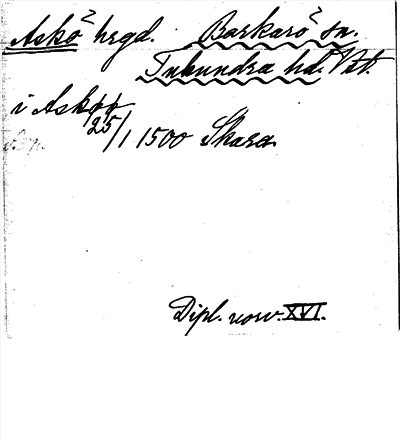 Askö² hrgd. Barkarö² sn.
Tuhundra hd. Vstt.
i Askøø
25/1 1500 Skara
Dipl. norv. XVI.